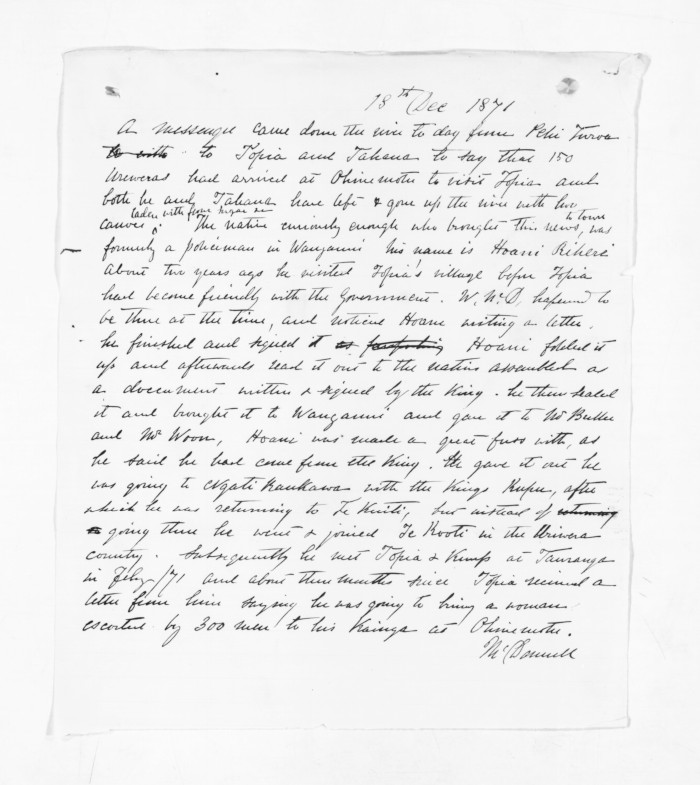 18th Dec 1871
A messenger came down the river to day from Pehi Turoa
to with to Topia and Tahana to say that 150
Ureweras had arrived at Ohinemotu to visit Topia and
both he and Tahana have left & gone up the river with two
laden with flour sugar &c
canoes. The native curiously enough who brought this news, to town was
formerly a policeman in Wanganui his name is Hoani Rihere
About two years ago he visited Topia's village before Topia
had become friendly with the Government. W. McD. happened to
be there at the time, and noticed Hoani writing a letter.
he finished and signed it as purporting Hoani folded it
up and afterwards read it out to the natives assembled as
a document written & signed by the King. he then sealed
it and brought it to Wanganui and gave it to Mr Buller
and Mr Woon, Hoani was made a great fuss with, as
he said he had come from the King. He gave it out he
was going to Ngati Raukawa with the Kings Kupu, after
which he was returning to Te Kuiti, but instead of returning
going there he went & joined Te Kooti in the Urivera
country. Subsequently he met Topia & Kemp at Tauranga
in Feby /71 and about three months since Topia received a
letter from him saying he was going to bring a woman
escorted by 300 men to his Kainga at Ohinemotu.
McDonnell